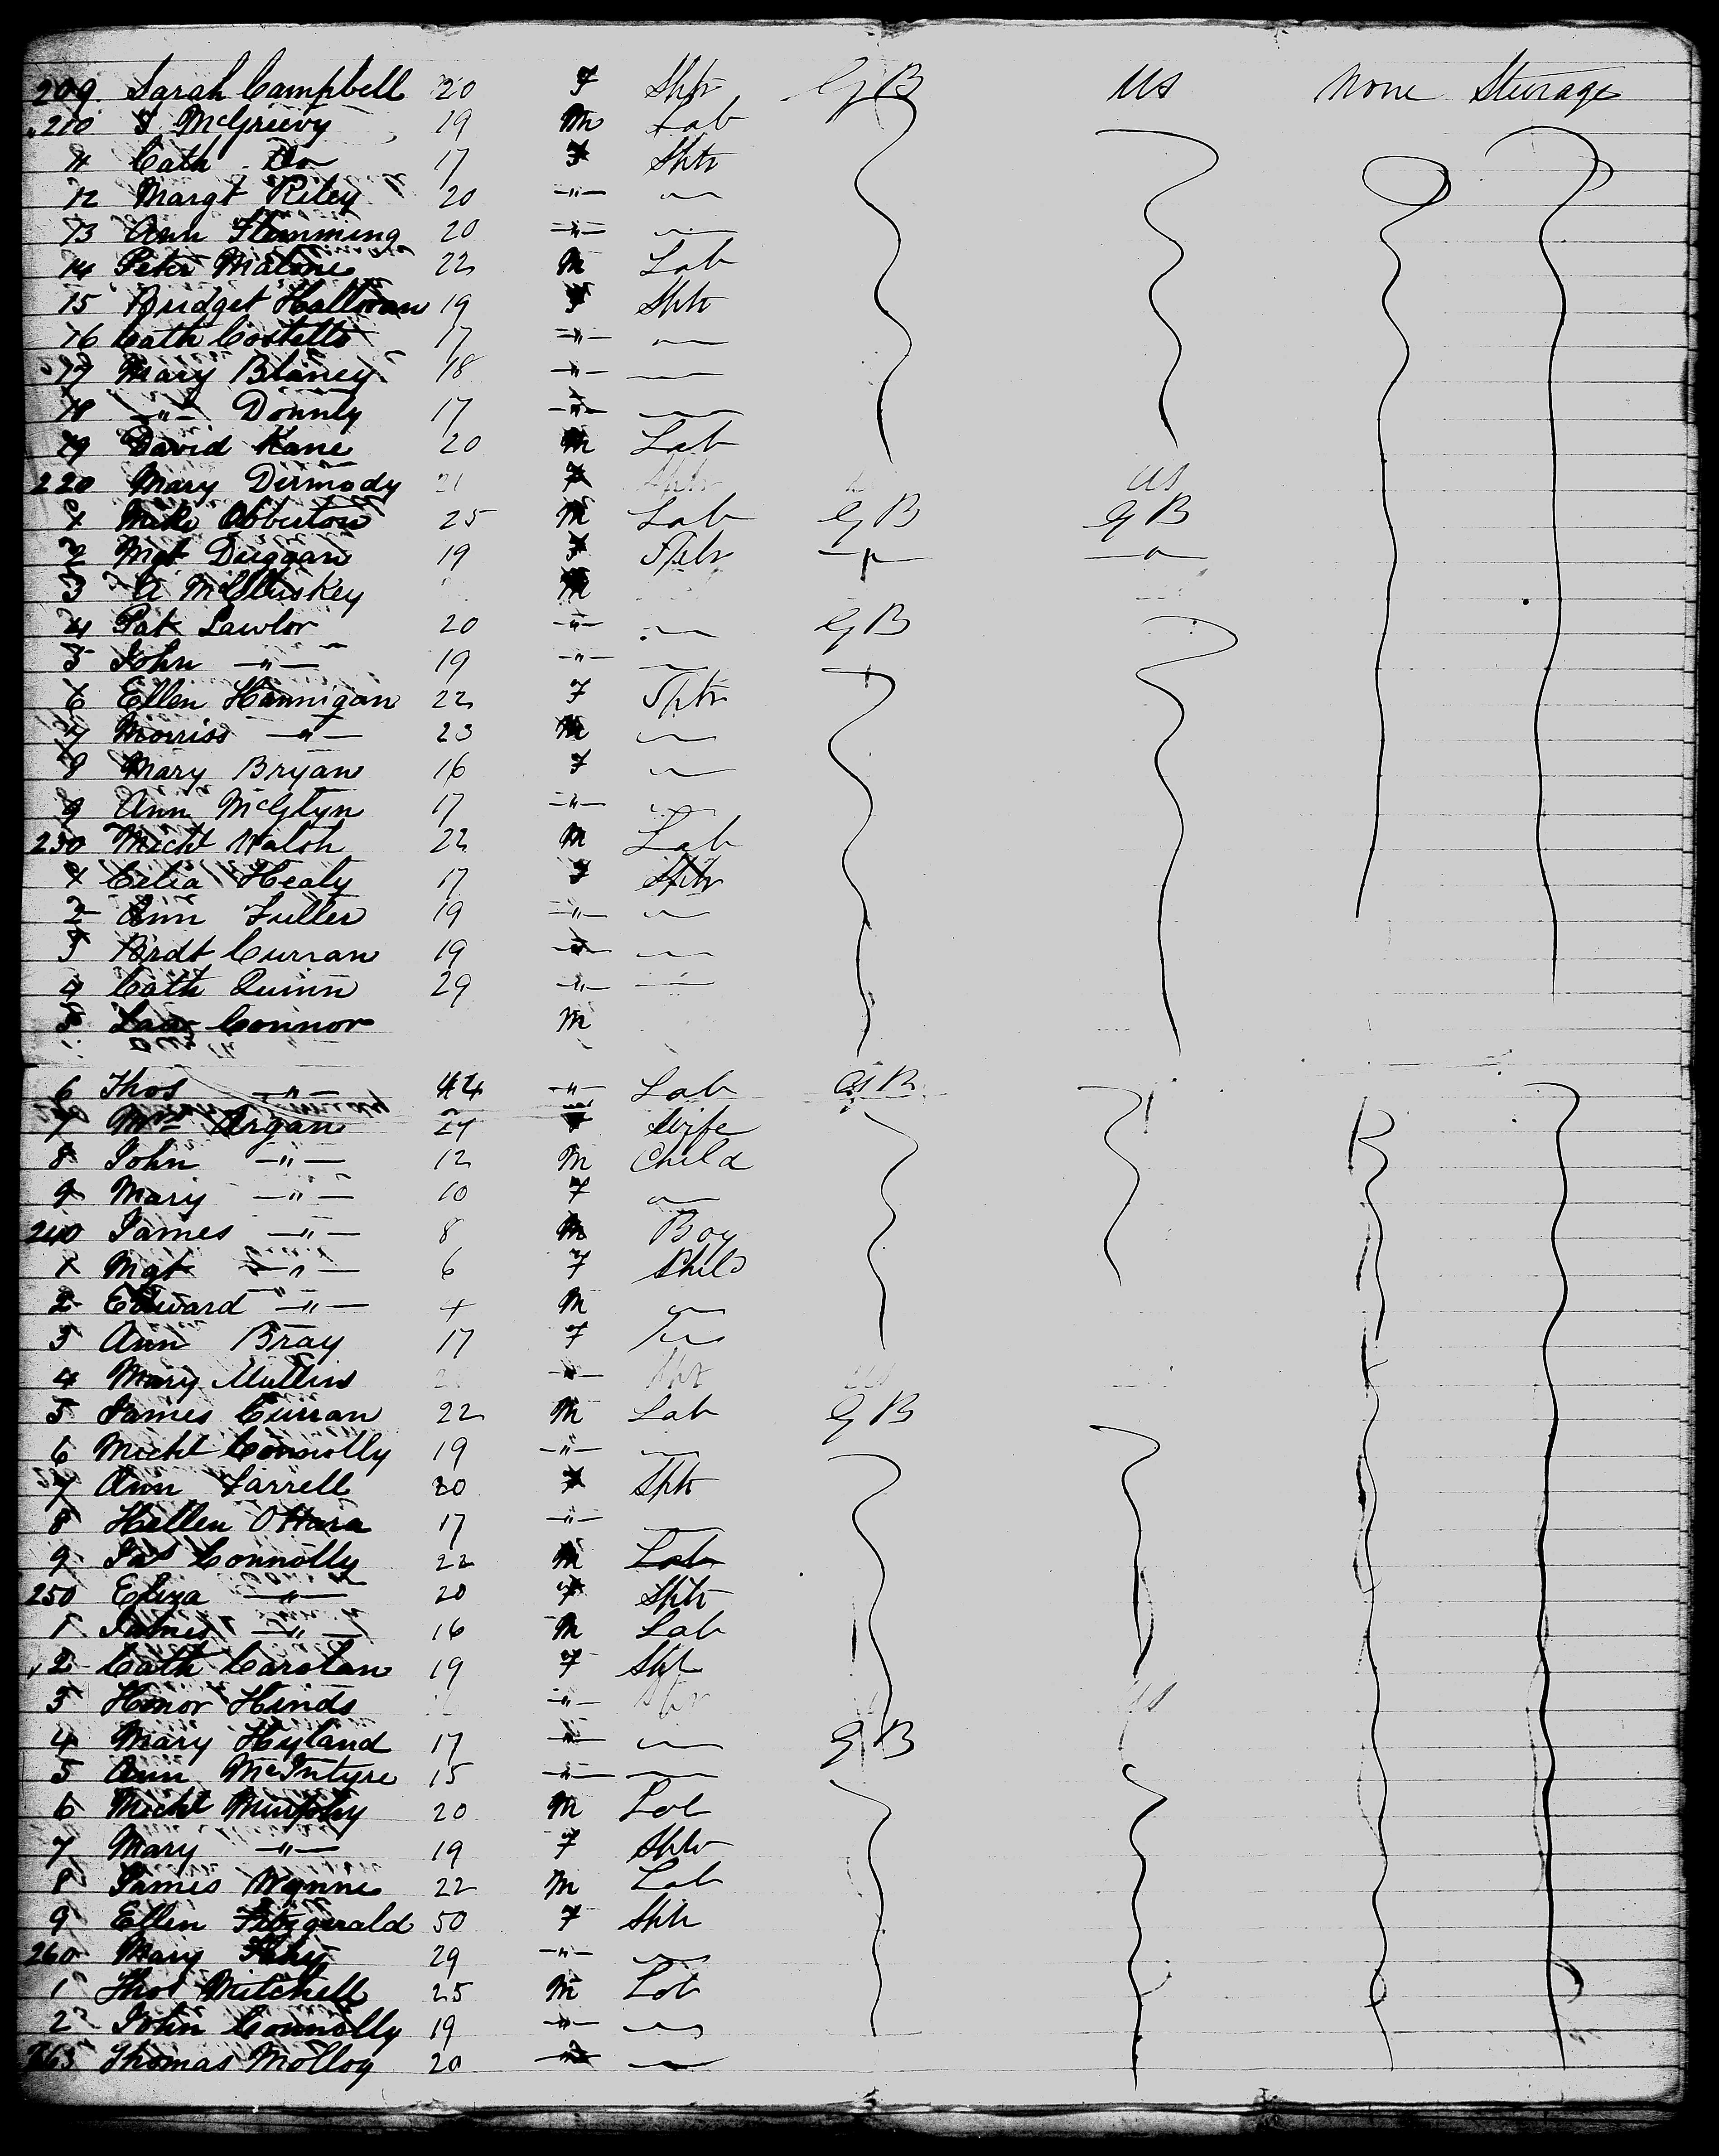 209 Sarah Campbell 20 F Sptr GB US None Steerage
210 S McGreevy 19 M Lab
11 Cath Do 17 F Sptr
12 Margt Riley 20 -"- —
13 Ann Flemming 20 -"- —
14 Peter Malone 22 M Lab
15 Bridget 19 F Sptr
16 Cath Costello 17 -"- —
17 Mary Blaney 18 -"- —
18 -"- Donnly 17 -"- —
19 David Kane 20 M Lab
220 Mary Dermody 21 F Sptr US
1 Mike Obberton 25 M Lab GB GB
2 Mgt Duggan 19 F Sptr -"- -"-
3 A McCluskey M
4 Pat Lawlor 20 -"- — GB
5 John -"- 19 -"- —
6 Ellen Hannigan 22 F Sptr
7 Morriss -"- 23 M —
8 Mary Bryan 16 F —
9 Ann McGlyn 17 -"- —
230 Michl Walsh 22 M Lab
1 Celia Healy 17 F Sptr
2 Ann Fuller 19 -"- —
3 Brdt Curran 19 -"- —
4 Cath Quinn 29 -"- —
5 Connor M
6 Thos -"- 44 -"- Lab GB
7 Mrs Argan 27 F Wife
8 John -"- 12 M Child
9 Mary -"- 10 F —
240 James -"- 8 M Boy
1 Mgt -"- 6 F Child
2 Edward -"- 4 M —
3 Ann Bray 17 F
4 Mary Mullins -"- Spt US
5 James Curran 22 M Lab GB
6 Michl Connolly 19 -"- —
7 Ann Farrell 20 F Sptr
8 Hellen OHara 17 -"- —
9 Jas Connolly 22 M Lab
250 Eliza -"- 20 F Sptr
1 James -"- 16 M Lab
2 Cath Carolan 19 F Spt
3 Honor Hinds -"- US
4 Mary Hyland 17 -"- — GB
5 Ann McIntyre 15 -"- —
6 Michl Murphy 20 M Lab
7 Mary -"- 19 F Sptr
8 James Wynne 22 M Lab
9 Ellen Fitzgerald 50 F Sptr
260 Mary 29 -"- —
1 Thos Mitchell 25 M Lab
2 John Connolly 19 -"- —
263 Thomas Molloy 20 -"- —